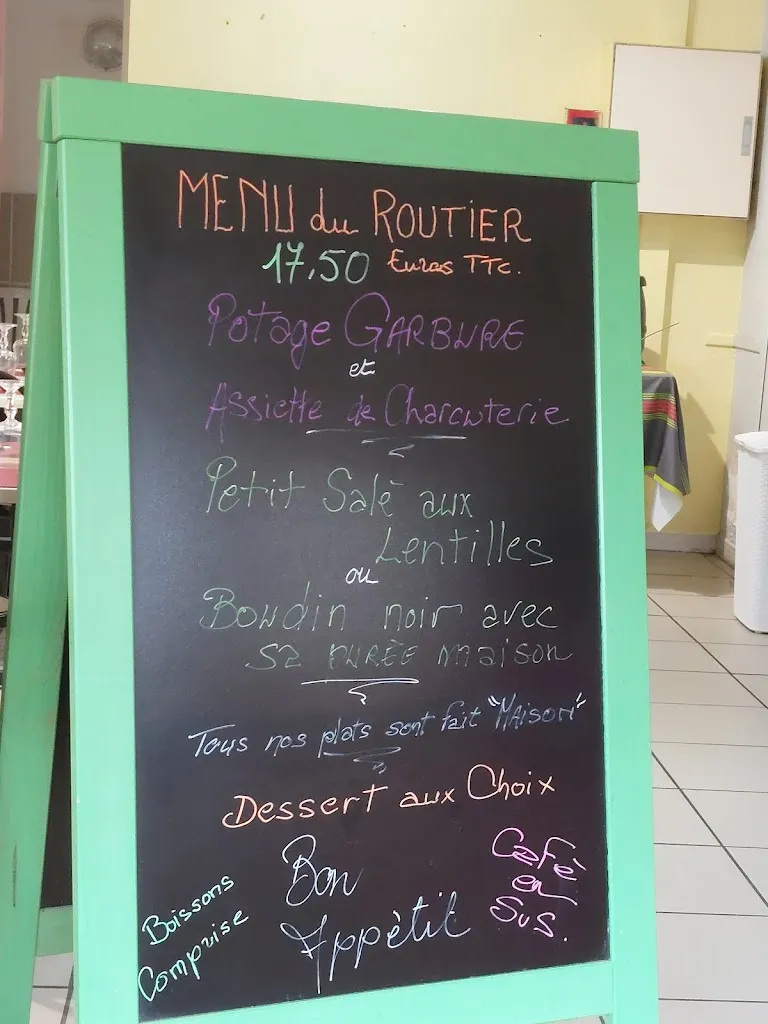 MENU du ROUTIER
17,50 Euros TTC.
Potage GARBURE
et
Assiette de Charcuterie
Petit Salè aux
Lentilles
ou
Boudin noir avec
sa PURÈE maison
Tous nos plats sont fait "MAISON"
Dessert aux Choix
Bon
Appètit
Boissons
Comprise
Cafè
en
SuS.